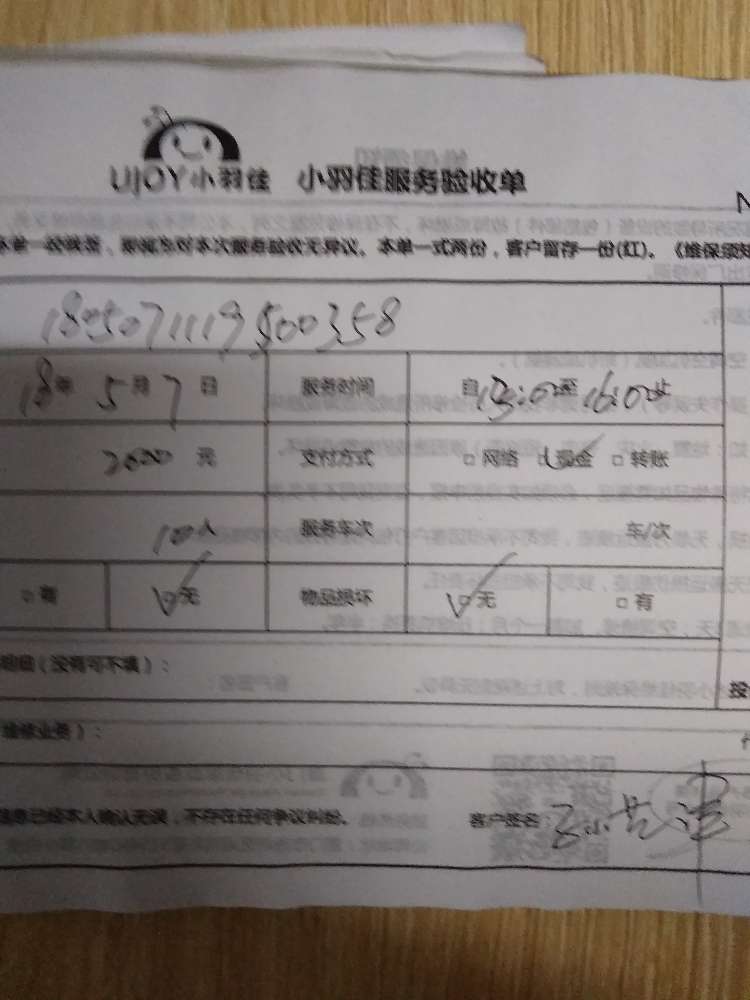 UJOY小羽佳 小羽佳服务验收单
本单一经签署，即视为对本次服务验收无异议。本单一式两份，客户留存一份(红)。《维保须知
1805071119500358
18年 5月 7日 服务时间 自 13:00至 16:00止
元 支付方式 □网络 □现金 □转账
10人 服务车次 车/次
□有 □无 物品损坏 □无 □有
明细（没有可不填）：
维修业务）：
信息已经本人确认无误，不存在任何争议纠纷。 客户签名：